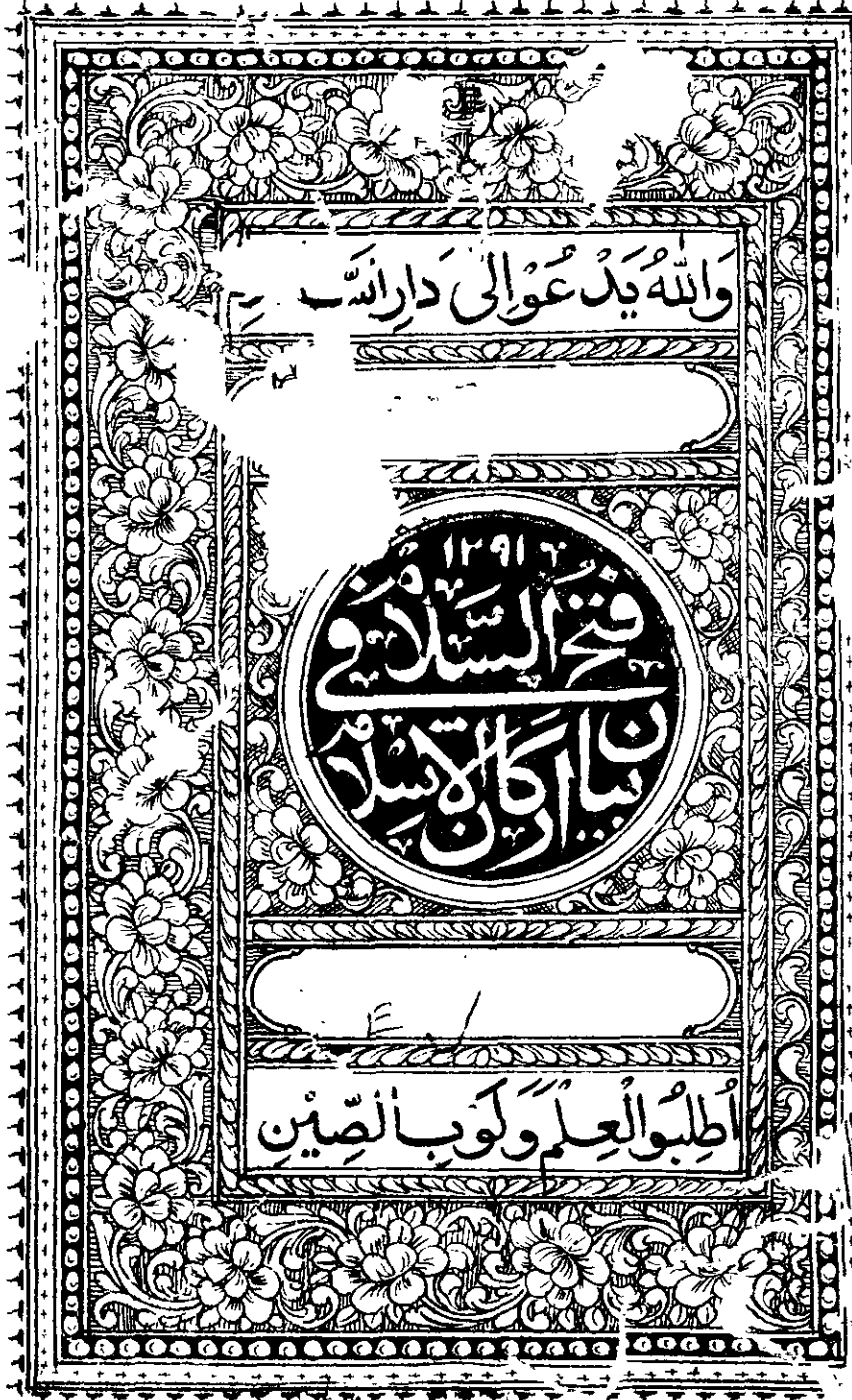 وَاللّٰهُ يَدْعُوْ اِلٰى دَارِ السَّـ ـمِ
١٢٩١
فَتْحُ السَّلَامِ فِي
بَيَانِ اَرْكَانِ الْاِسْلَامِ
اُطْلُبُوا الْعِلْمَ وَلَوْ بِالصِّيْنِ